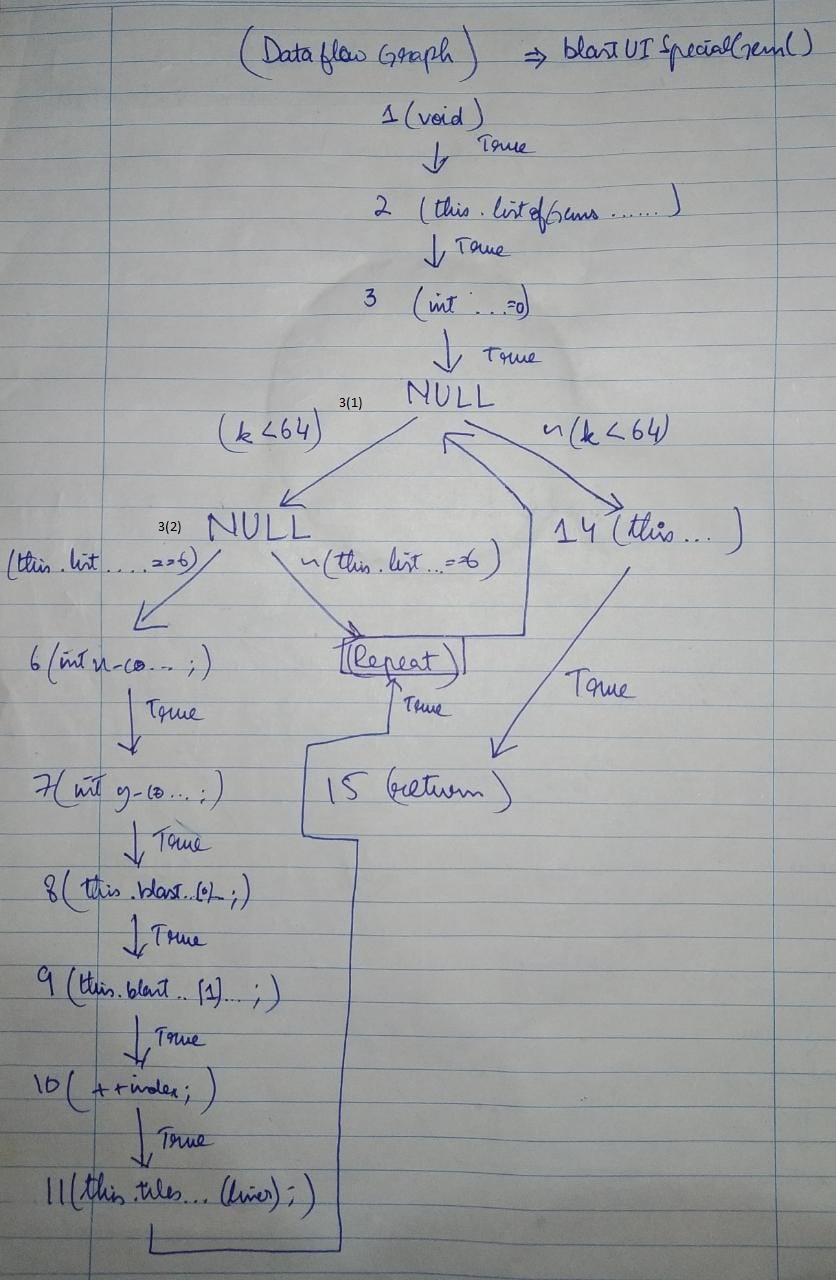 (Dataflow Graph) ⇒ blastUISpecialGem()
1 (void)
True
2 (this.listofGems.......)
True
3 (int ...=0)
True
3(1) NULL
(k<64) ~(k<64)
3(2) NULL 14 (this...)
(this.list.....==6) ~(this.list...==6)
6 (int x-co...;) (Repeat)
True True True
7 (int y-co...;) 15 (return)
True
8 (this.blast..[0]..;)
True
9 (this.blast..[1]...;)
True
10 (++index;)
True
11 (this.tiles...(
);)